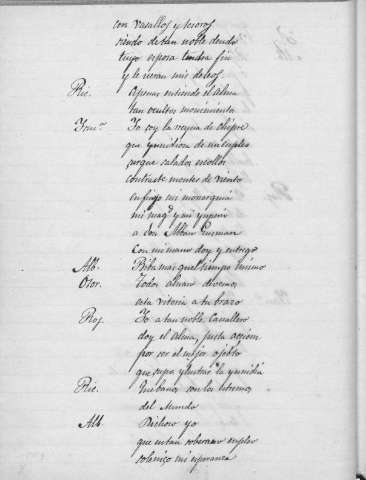 con vasallos y tesoros
siendo de tan noble deudo
tuyo esposa tendra fin
y le veran mis deseos
Ric. Apenas entiendo el alma
tan ocultos movimientos
Yo soy la reyna de chipre
que ynvidiosa de
surque salados escollos
contraste montes de viento
mi monarquia
mi mag.d y mi ynperio
a don Alban Gusman
con mi mano doy y entrego
Alb. Biba mas que el tiempo mismo
Otor. Todos alaban
esta vitoria a tu brazo
Ros. Yo a tan noble cavallero
doy el Alma, justa accion
por ser el mejor ojebto
que supo ylustrar la ynvidia
Ric. son los estremos
del Mundo
Alb. Dichoso yo
que en tan soberano empleo
solenizo mi esperanza